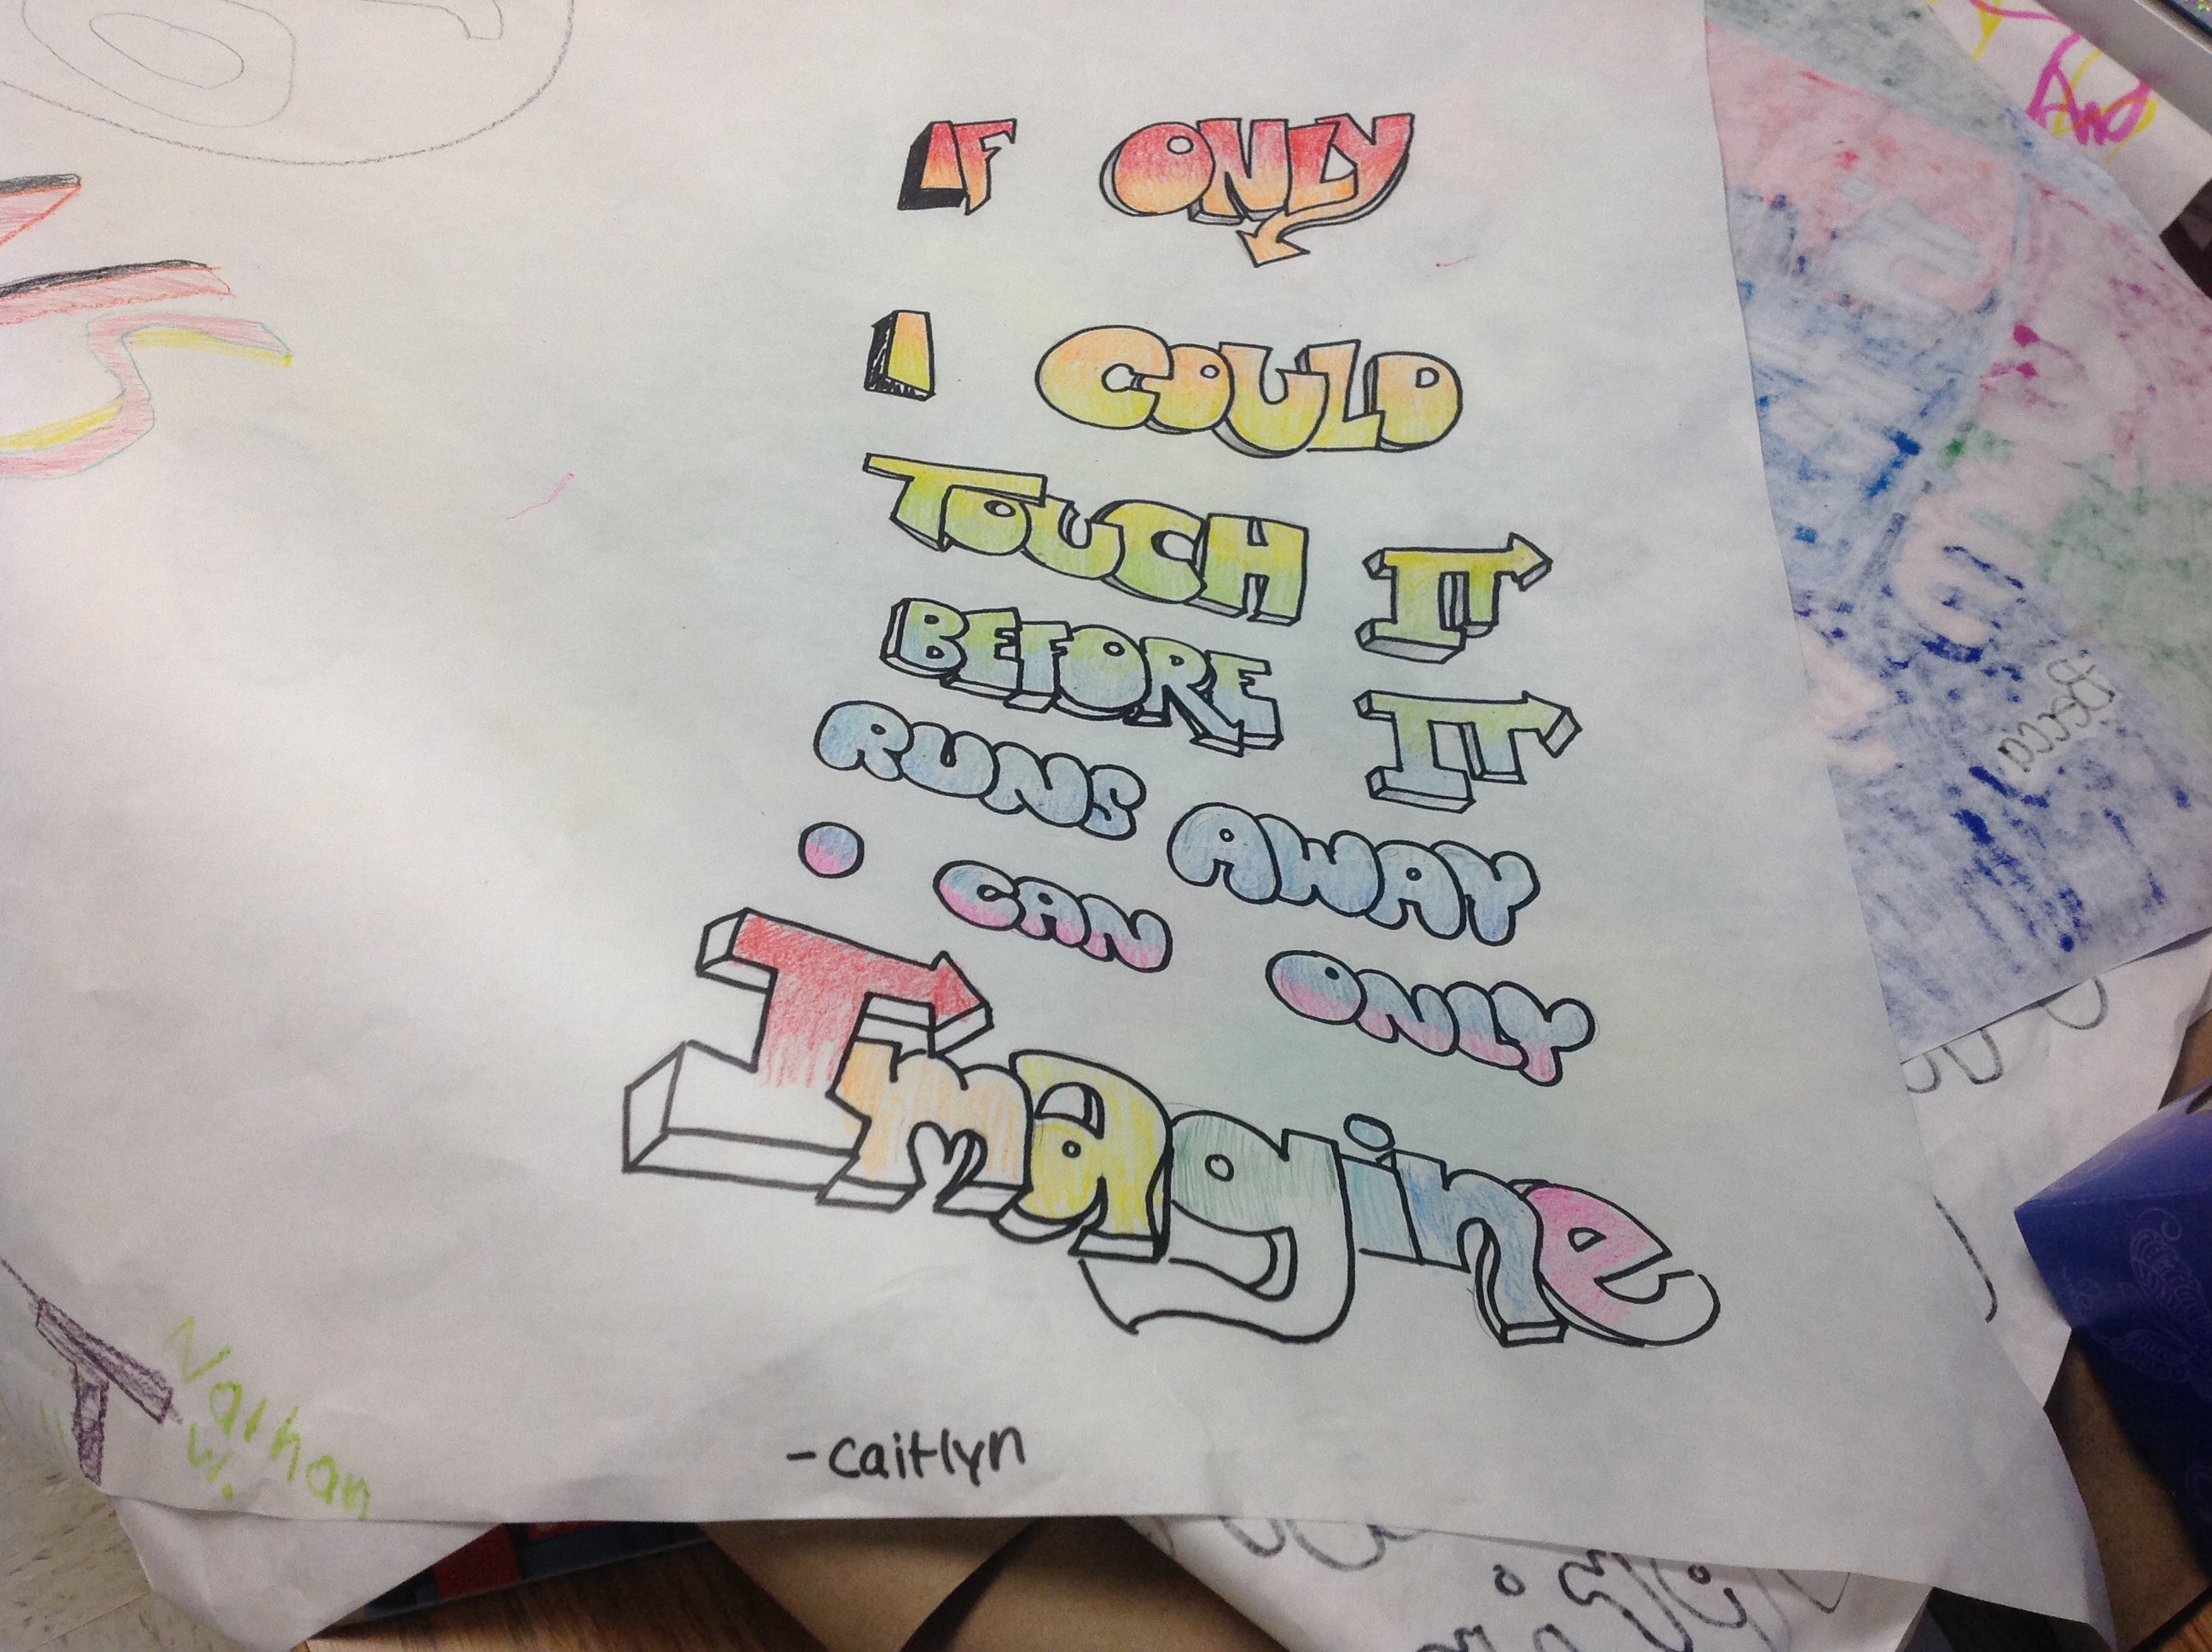 IF ONLY
I COULD
TOUCH IT
BEFORE IT
RUNS AWAY
• CAN ONLY
Imagine
-caitlyn
Nathan
W.
Becca
And